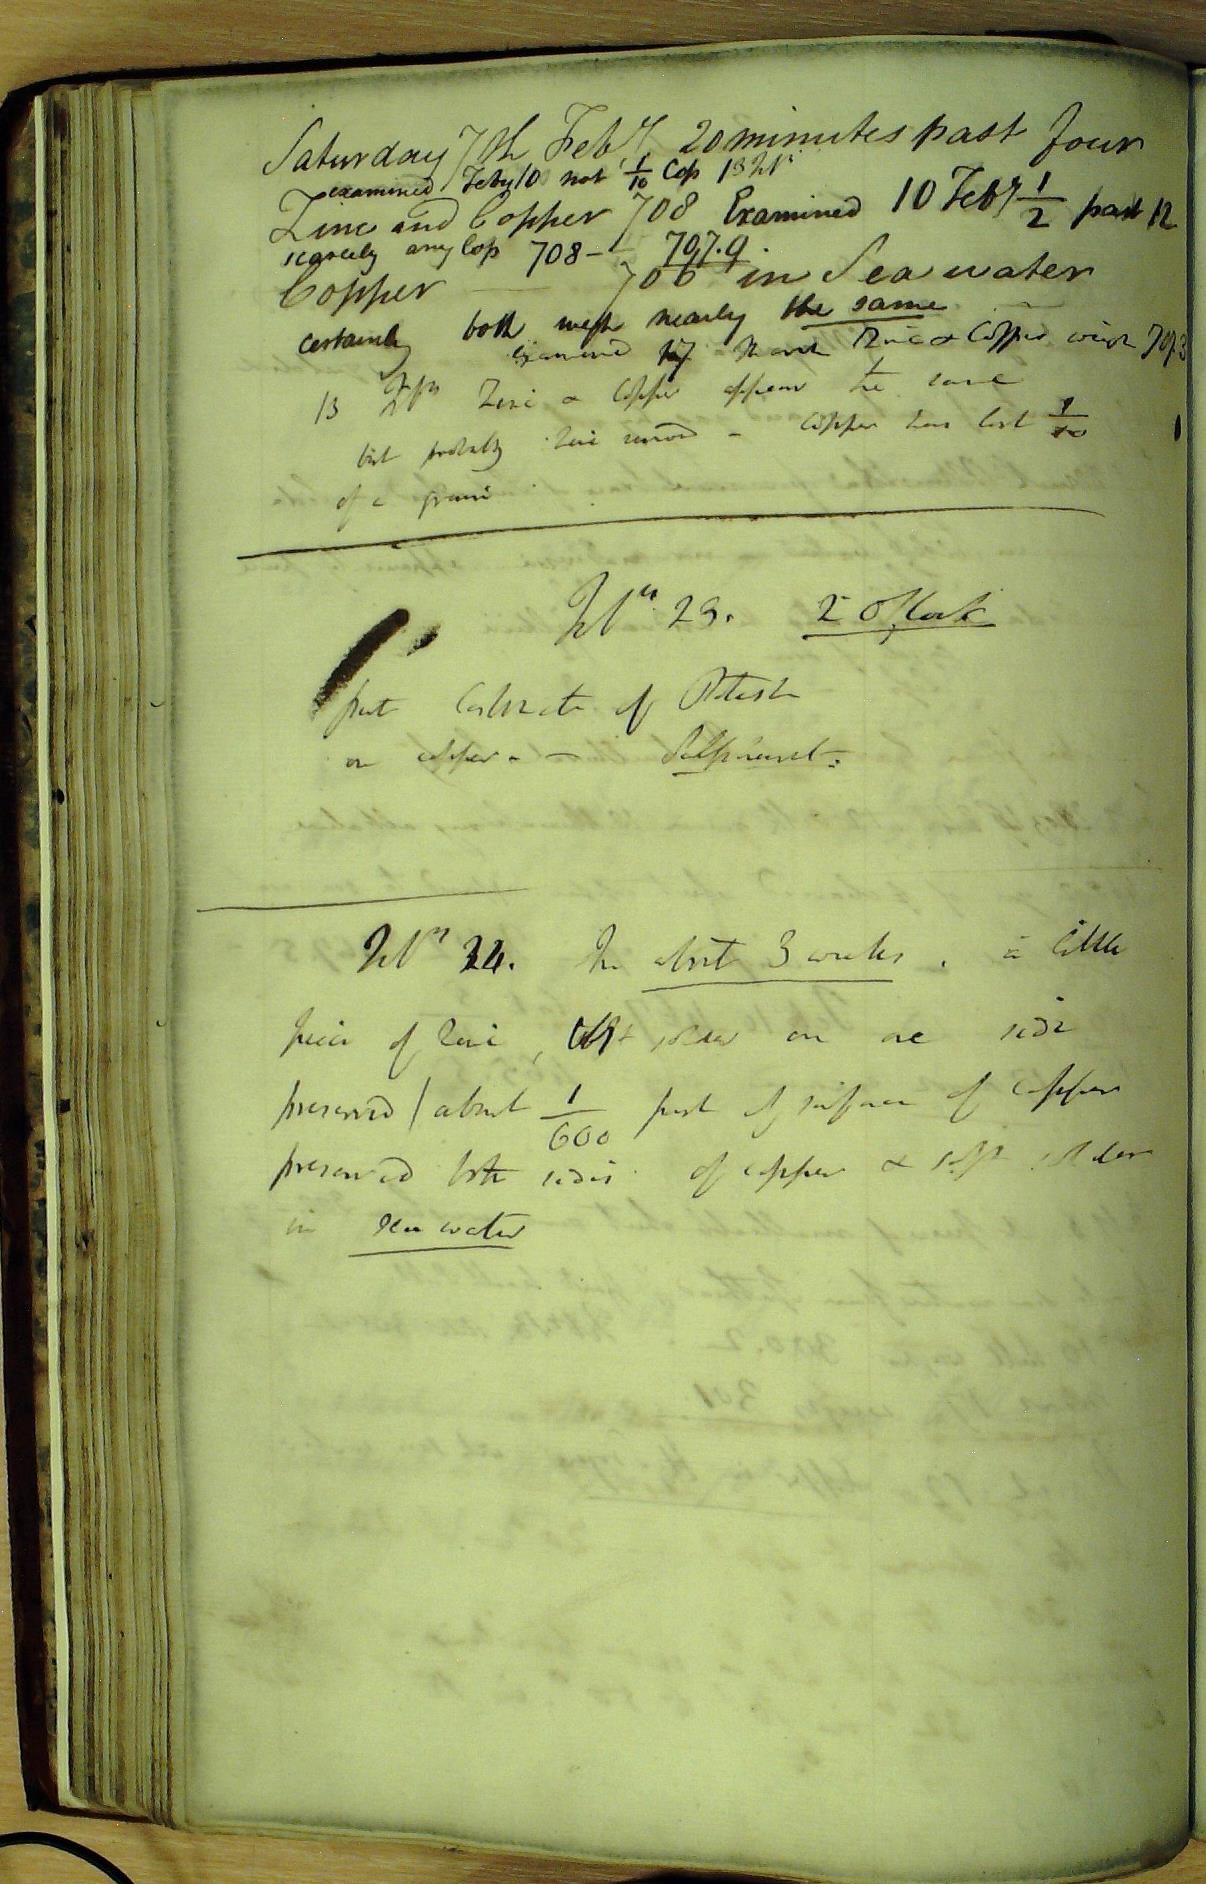 Saturday 7th Feby. 20 minutes past four
examined Feby 10 not 1/10 Cop 13
Zinc and Copper 708 Examined 10 Feby 1/2 past 12
scarcely any Cop 708 - 707.9.
Copper 708 in Sea water
certainly both weigh nearly the same
examined March Zinc & Copper weigh 707.3
13 Zinc & Copper appear the same
but probably Zinc - Copper has lost 1/10
of a grain
23. 2 O'Clock
put Carbonate of Potash
on copper - -
24. In about 3 weeks, a little
piece of Zinc, solder on one side
preserved / about 1/600 part of surface of copper
preserved both sides of copper & soft solder
in sea water